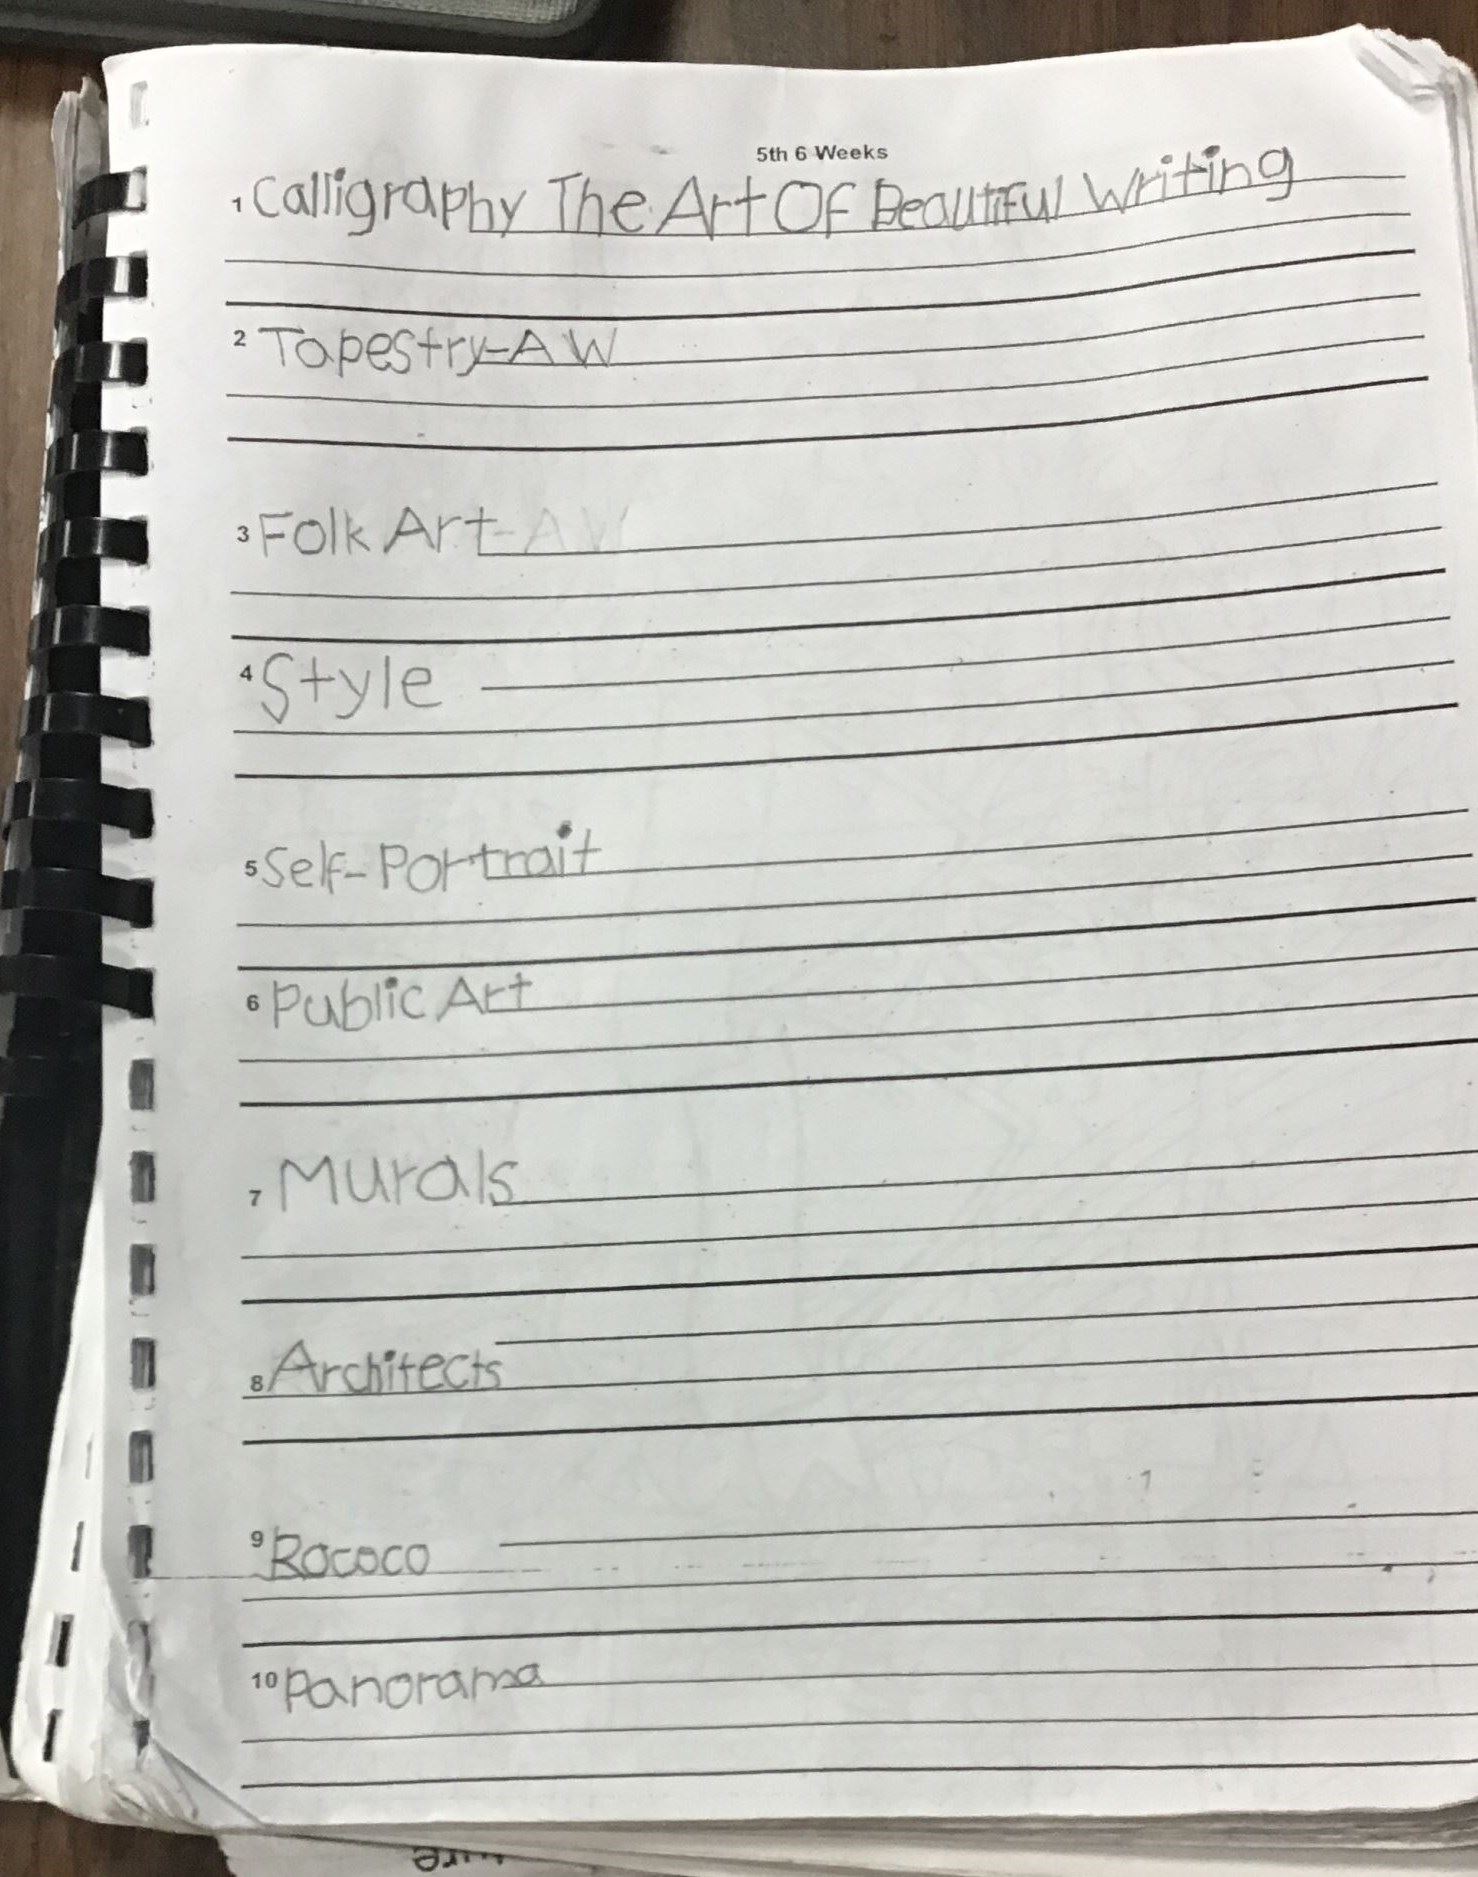 5th 6 Weeks
1 Calligraphy The Art Of Beautiful Writing
2 Tapestry-AW
3 Folk Art-AW
4 Style
5 Self-Portrait
6 Public Art
7 Murals
8 Architects
9 Rococo
10 Panorama